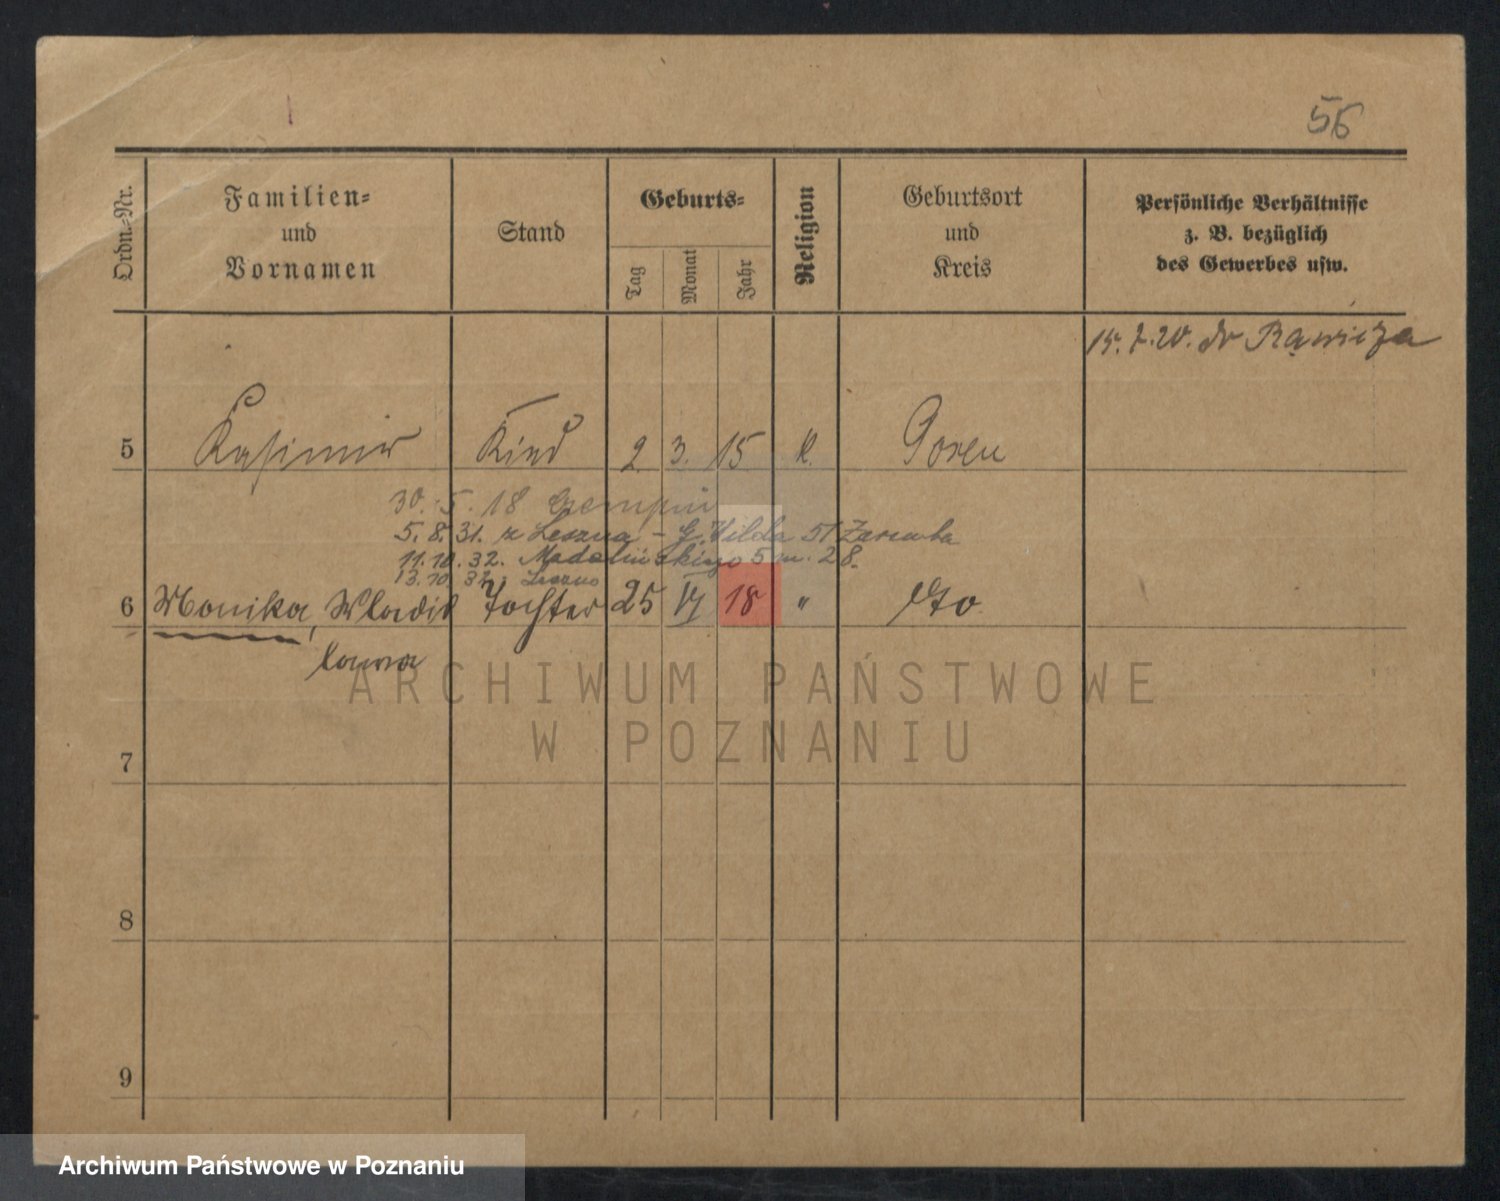 56
Ordn.-Nr.
Familien-
und
Vornamen
Stand
Geburts-
Tag
Monat
Jahr
Religion
Geburtsort
und
Kreis
Persönliche Verhältnisse
z. B. bezüglich
des Gewerbes usw.
15.7.20. do Rawicza
5 Kasimir Kind 2 3. 15 k. Posen
30. 5. 18 Czempin
5. 8. 31. z Leszna - G. Wilda 51 Zaremba
11.10.32. Madalińskiego 5 m. 28.
13.10.32. Leszno
6 Monika, Wladis Tochter 25 VI 18 "
lawa
7
8
9
ARCHIWUM PAŃSTWOWE
W POZNANIU
Archiwum Państwowe w Poznaniu